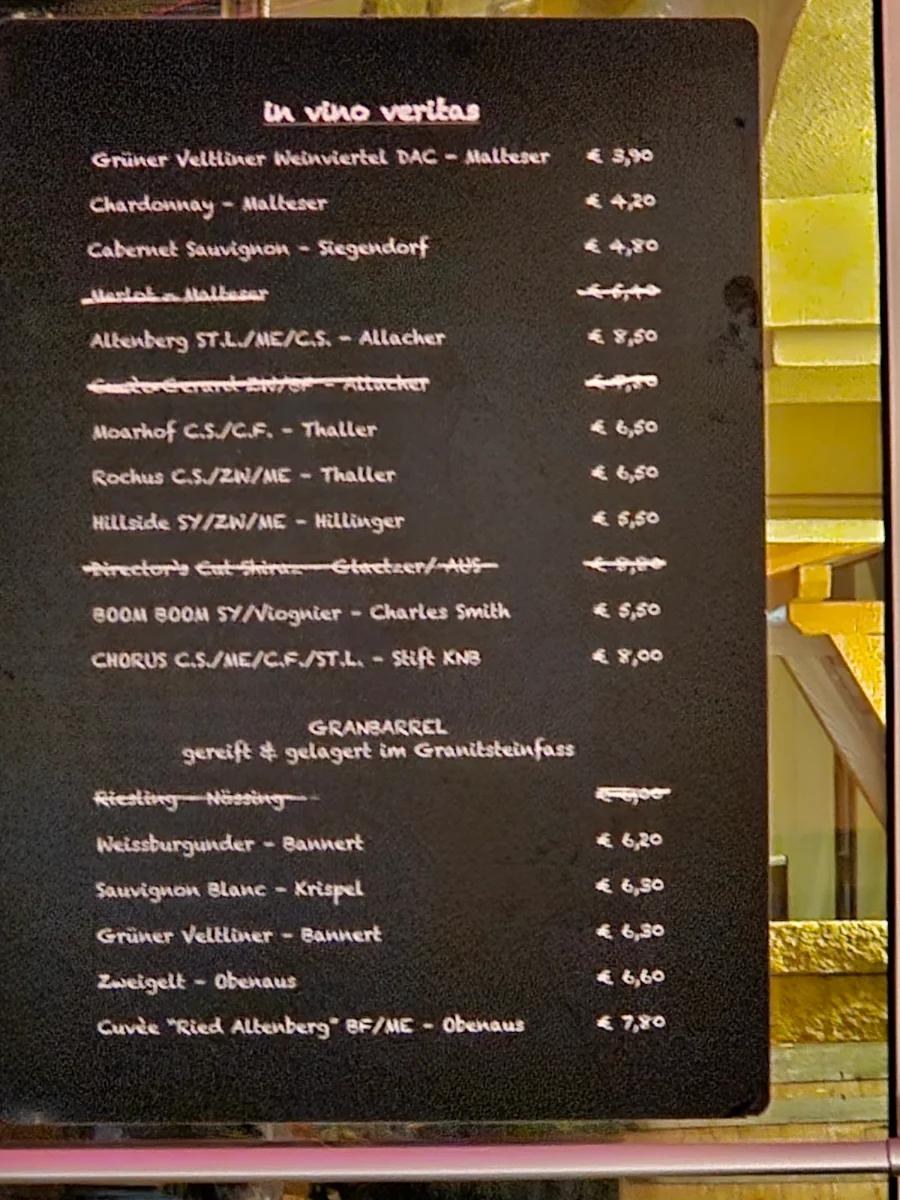 in vino veritas
Grüner Veltliner Weinviertel DAC - Malteser € 3,90
Chardonnay - Malteser € 4,20
Cabernet Sauvignon - Siegendorf € 4,80
Merlot - Malteser €
Altenberg ST.L./ME/C.S. - Allacher € 8,50
Gerard ZW/BF - Allacher €
Moarhof C.S./C.F. - Thaller € 6,50
Rochus C.S./ZW/ME - Thaller € 6,50
Hillside SY/ZW/ME - Hillinger € 5,50
Director's Cut Shiraz - Glaetzer/ AUS €
BOOM BOOM SY/Viognier - Charles Smith € 5,50
CHORUS C.S./ME/C.F./ST.L. - Stift KNB € 8,00
GRANBARREL
gereift & gelagert im Granitsteinfass
Riesling - Nössing €
Weissburgunder - Bannert € 6,20
Sauvignon Blanc - Krispel € 6,30
Grüner Veltliner - Bannert € 6,30
Zweigelt - Obenaus € 6,60
Cuvèe "Ried Altenberg" BF/ME - Obenaus € 7,80